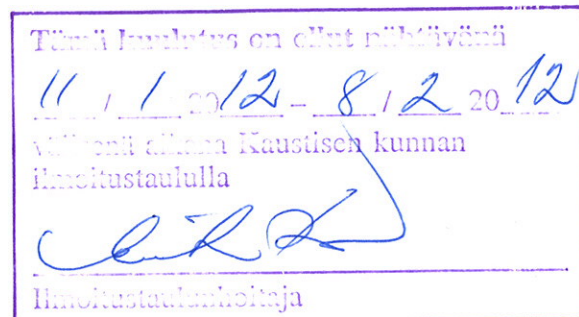 Tämä kuulutus on ollut nähtävänä
11 / 1 2012 – 8 / 2 2012
välisenä aikana Kaustisen kunnan
ilmoitustaululla
Ilmoitustaulunhoitaja